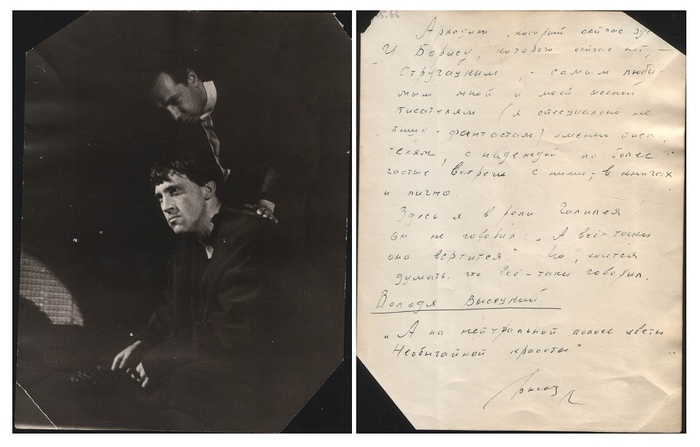 Аркадию, который сейчас здесь
И Борису, которого сейчас нет, —
Стругацким, - самым люби-
мым мной и моей женой
писателям (я специально не
пишу - фантастам) оменны писа-
телям, с надеждой на более
частые встречи с ними, в книгах
и лично
Здесь я в роли Галилея
он не говорил: „А всё-таки
она вертится" Но, хочется
думать, что всё-таки говорил.
Володя Высоцкий
„А на нейтральной полосе цветы
Необычайной красоты"